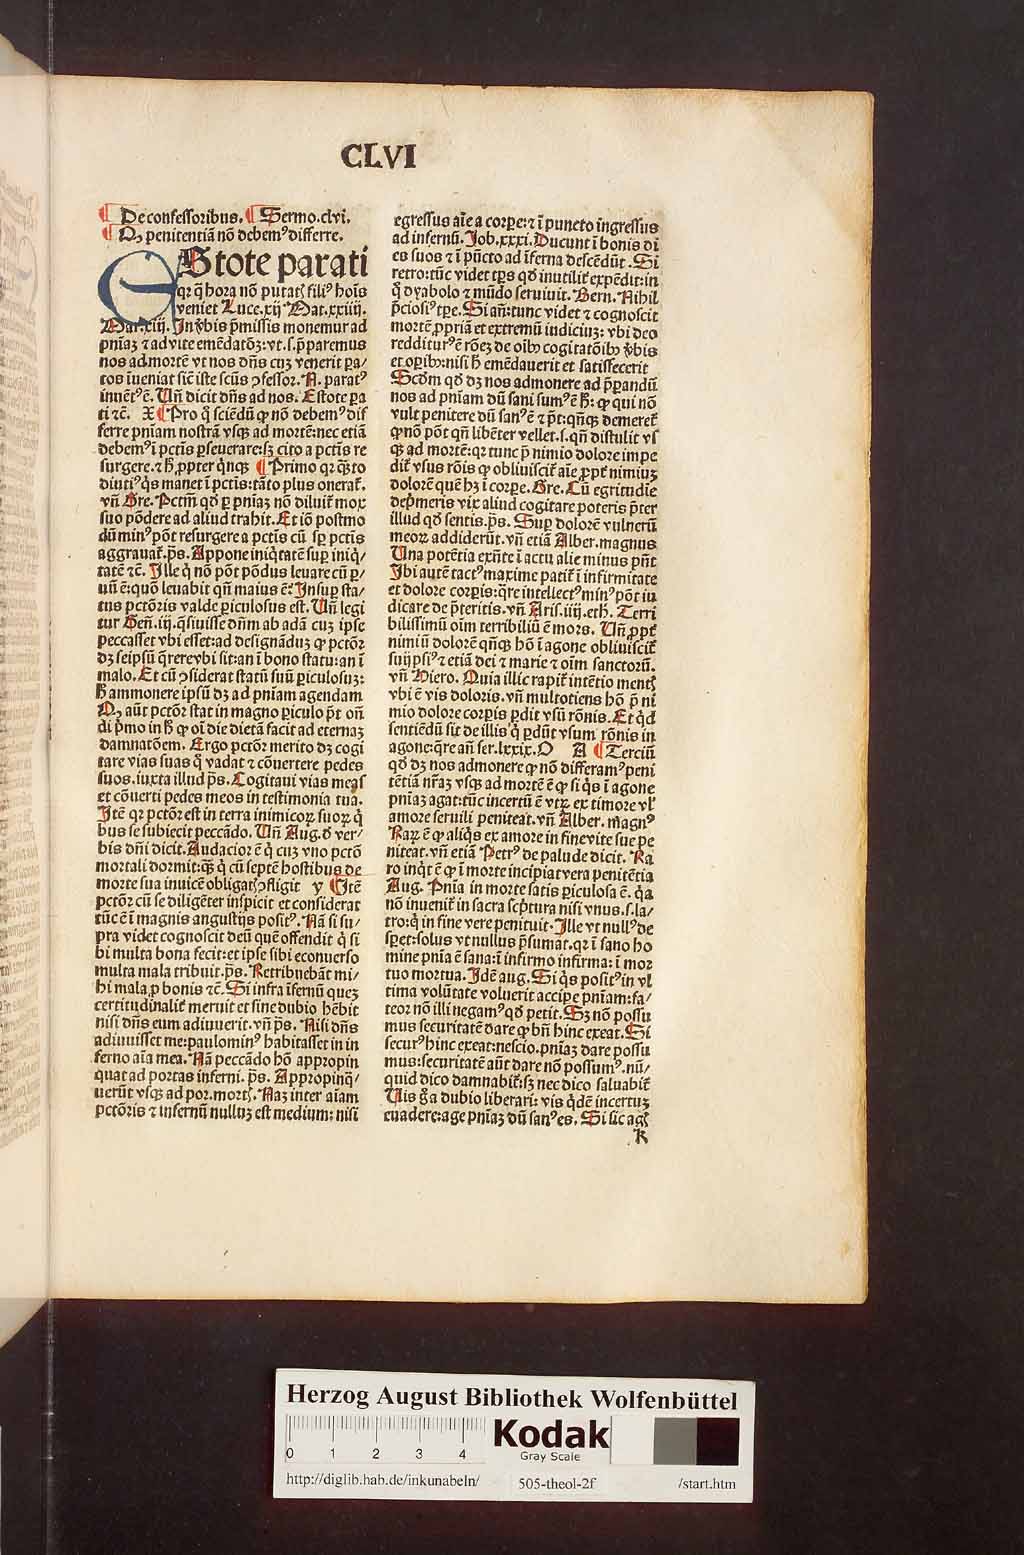 CLVI
¶ De confessoribus. ¶ Sermo.clvi.
¶ Qꝫ penitentiā nō debemꝰ differre.
EStote parati
qꝛ q̄ hora nō putatꝭ filiꝰ hoīs
veniet Luce.xij Mat.xxiiij.
Mar.xiij. In v̄bis p̄missis monemur ad
pn̄iaꝫ ⁊ ad vite emēdatōꝫ: vt.s.p̄paremus
nos ad mortē vt nos dn̄s cuꝫ venerit ꝑa/
tos iueniat sic̄ iste scūs ꝯfessor. N. paratꝰ
inuētꝰ ē. Un̄ dicit dn̄s ad nos. Estote para
ti ⁊c̄. X ¶ Pro q̄ sciēdū ꝙ nō debemꝰ dif
ferre pn̄iam nostrā vsqꝫ ad mortē: nec etiā
debemꝰ ī pctīs ꝑseuerare: sꝫ cito a pctīs re
surgere. ⁊ h̄ ꝓpter q̄nqꝫ ¶ Primo qꝛ q̄sto
diutiꝰ q̇s manet ī pctīs: tāto plus onerat̄.
vn̄ Gre. Pctm̄ qd̄ ꝑ pn̄iaꝫ nō diluit̄ mox
suo pōdere ad aliud trahit. Et iō postmo
dū minꝰ pōt resurgere a pctīs cū sꝑ pctīs
aggrauat̄. p̄s. Appone iniq̇tatē suꝑ iniq̇/
tatē ⁊c̄. Ille q̇ nō pōt pōdus leuare cū ꝑ/
uū ē: quō leuabit qn̄ maius ē: Insuꝑ sta/
tus pctōris valde ꝑiculosus est. Un̄ legi
tur Gen̄.iij. q̄siuisse dn̄m ab adā cuꝫ ipse
peccasset vbi esset: ad designādū ꝙ pctōr
dꝫ seipsū q̄rere vbi sit: an ī bono statu: an ī
malo. Et cū ꝯsiderat statū suū ꝑiculosuꝫ:
h̄ ammonere ipsū dꝫ ad pniam agendam
Qꝫ aūt pctōr stat in magno ꝑiculo p̄t on̄
di p̄mo in h̄ ꝙ oī die dietā facit ad eternaꝫ
damnatōem. Ergo pctōr merito dꝫ cogi
tare vias suas q̄ vadat ⁊ cōuertere pedes
suos. iuxta illud p̄s. Cogitaui vias meas
et cōuerti pedes meos in testimonia tua.
Itē qꝛ pctōr est in terra inimicoꝝ suoꝝ q̇
bus se subiecit peccādo. Un̄ Aug. d̄ ver/
bis dn̄i dicit. Audacior ē q̇ cuꝫ vno pctō
mortali dormit: qꝫ q̇ cū septē hostibus de
morte sua inuicē obligatꝭ ꝯfligit y ¶ Itē
pctōr cū se diligēter inspicit et considerat
tūc ē ī magnis angustijs positꝰ. Nā si su/
pra videt cognoscit deū quē offendit q̇ si
bi multa bona fecit: et ipse sibi econuerso
multa mala tribuit. p̄s. Retribuebāt mi/
hi mala ꝓ bonis ⁊c̄. Si infra īfernū queꝫ
certitudinalit̄ meruit et sine dubio hēbit
nisi dn̄s eum adiuuerit. vn̄ p̄s. Nisi dn̄s
adiuuisset me: paulominꝰ habitasset in in
ferno aīa mea. Nā peccādo hō appropin
quat ad portas inferni. p̄s. Appropinq̇/
uerūt vsqꝫ ad por. mortꝭ. Naꝫ inter aīam
pctōris ⁊ infernū nulluꝫ est medium: nisi
egressus aīe a corꝑe: ⁊ ī puncto ingressus
ad infernū. Job.xxxi. Ducunt ī bonis di
es suos ⁊ ī pūcto ad īferna descēdūt. Si
retro: tūc videt tꝑs qd̄ inutilit̄ expēdit: in
q̄ dyabolo ⁊ mūdo seruiuit. Bern. Nihil
p̄ciosiꝰ tꝑe. Si an̄: tunc videt ⁊ cognoscit
mortē ꝓpriā et extremū iudiciuꝫ: vbi deo
redditurꝰ ē rōeꝫ de oībꝫ cogitatōibꝫ v̄bis
et oꝑibꝫ: nisi h̄ emēdauerit et satisfecerit
Scdm̄ qd̄ dꝫ nos admonere ad p̄parandū
nos ad pniam dū sani sumꝰ ē h̄: ꝙ qui nō
vult penitere dū sanꝰ ē ⁊ p̄t: qn̄qꝫ demeret̄
ꝙ nō pōt qn̄ libēter vellet. s. qn̄ distulit vs
qꝫ ad mortē: qꝛ tunc p̄ nimio dolore impe
dit̄ vsus rōis ꝙ obliuiscit̄ aīe ꝓpt̄ nimiuꝫ
dolorē quē hꝫ ī corꝑe. Gre. Cū egritudie
dep̄meris vix aliud cogitare poteris p̄ter
illud qd̄ sentis. p̄s. Suꝑ dolorē vulnerū
meoꝝ addiderūt. vn̄ etiā Alber. magnus
Una potētia exn̄te ī actu alie minus pn̄t
Ibi autē tactꝰ maxime patit̄ ī infirmitate
et dolore corꝑis: q̄re intellectꝰ minꝰ pōt iu
dicare de p̄teritis. vn̄ Aris.iiij.eth. Terri
bilissimū oīm terribiliū ē mors. Un̄ ꝓpt̄
nimiū dolorē qn̄qꝫ hō ī agone obliuiscit̄
suijpsiꝰ ⁊ etiā dei ⁊ marie ⁊ oīm sanctorū.
vn̄ Hiero. Quia illic rapit̄ intētio mentꝭ
vbi ē vis doloris. vn̄ multotiens hō p̄ ni
mio dolore corꝑis ꝑdit vsū rōnis. Et q̇d
sentiēdū sit de illis q̇ ꝑdūt vsum rōnis in
agone: q̄re an̄ ser.lxxix. O A ¶ Terciū
qd̄ dꝫ nos admonere ꝙ nō differamꝰ peni
tētiā nr̄aꝫ vsqꝫ ad mortē ē ꝙ si q̇s ī agone
pn̄iaꝫ agat: tūc incertū ē vtꝝ ex timore vl̓
amore seruili peniteat. vn̄ Alber. magnꝰ
Raꝝ ē ꝙ aliq̇s ex amore in fine vite sue pe
niteat. vn̄ etiā Petrꝰ de palude dicit. Ra
ro inq̇t ē ꝙ ī morte incipiat vera penitētia
Aug. Pn̄ia in morte satis ꝑiculosa ē. q̇a
nō inuenit̄ in sacra scp̄tura nisi vnus. s. la/
tro: q̇ in fine vere penituit. Ille vt nullꝰ de
sꝑet: solus vt nullus p̄sumat. qꝛ ī sano ho
mine pn̄ia ē sana: ī infirmo infirma: ī mor
tuo mortua. Idē aug. Si q̇s positꝰ in vl
tima volūtate voluerit accipe pniam: fa/
teor nō illi negamꝰ qd̄ petit. Sꝫ nō possu
mus securitatē dare ꝙ bn̄ hinc exeat. Si
securꝰ hinc exeat: nescio. pn̄iaꝫ dare possu
mus: securitatē aūt dare nō possumꝰ. nū/
quid dico damnabit̄: sꝫ nec dico saluabit̄
Uis g̊a dubio liberari: vis q̇dē incertuꝫ
euadere: age pn̄iaꝫ dū sanꝰ es. Si sic agꝭ
K
Herzog August Bibliothek Wolfenbüttel
0 1 2 3 4
Kodak
Gray Scale
http://diglib.hab.de/inkunabeln/ 505-theol-2f /start.htm